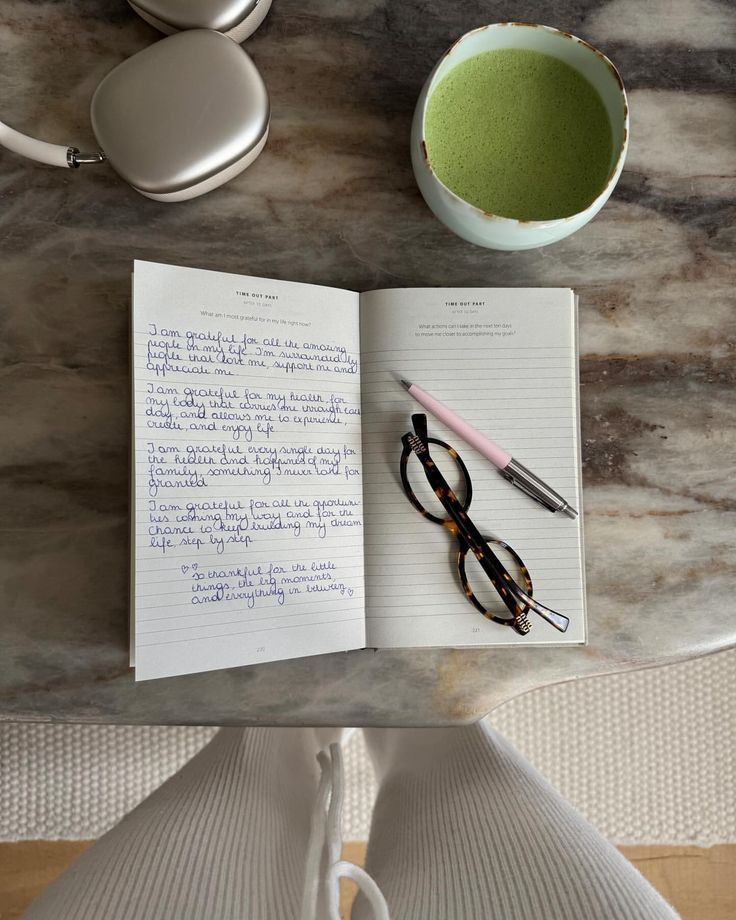 TIME OUT PART
AFTER 10 DAYS
What am I most grateful for in my life right now?
I am grateful for all the amazing
people in my life. I'm surrounded by
people that love me, support me and
appreciate me.
I am grateful for my health, for
my body that carries me through each
day, and allows me to experience,
create, and enjoy life.
I am grateful every single day for
the health and happiness of my
family, something I never take for
granted.
I am grateful for all the opportuni-
ties coming my way and for the
chance to keep building my dream
life, step by step.
so thankful for the little
things, the big moments,
and everything in between.
TIME OUT PART
AFTER 10 DAYS
What actions can I take in the next ten days
to move me closer to accomplishing my goals?